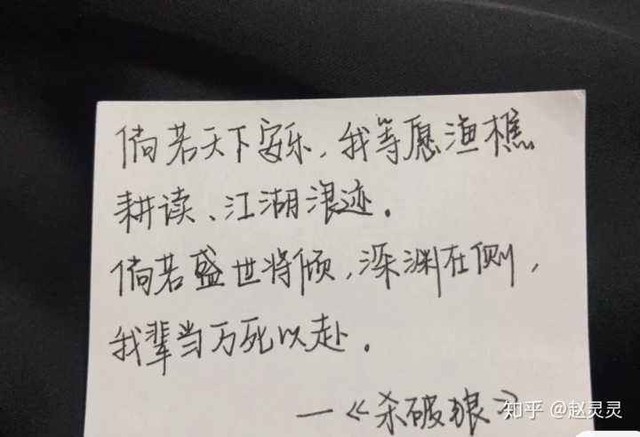 倘若天下安乐，我等愿渔樵
耕读、江湖浪迹。
倘若盛世将倾，深渊在侧，
我辈当万死以赴。
—《杀破狼》
知乎 @赵灵灵